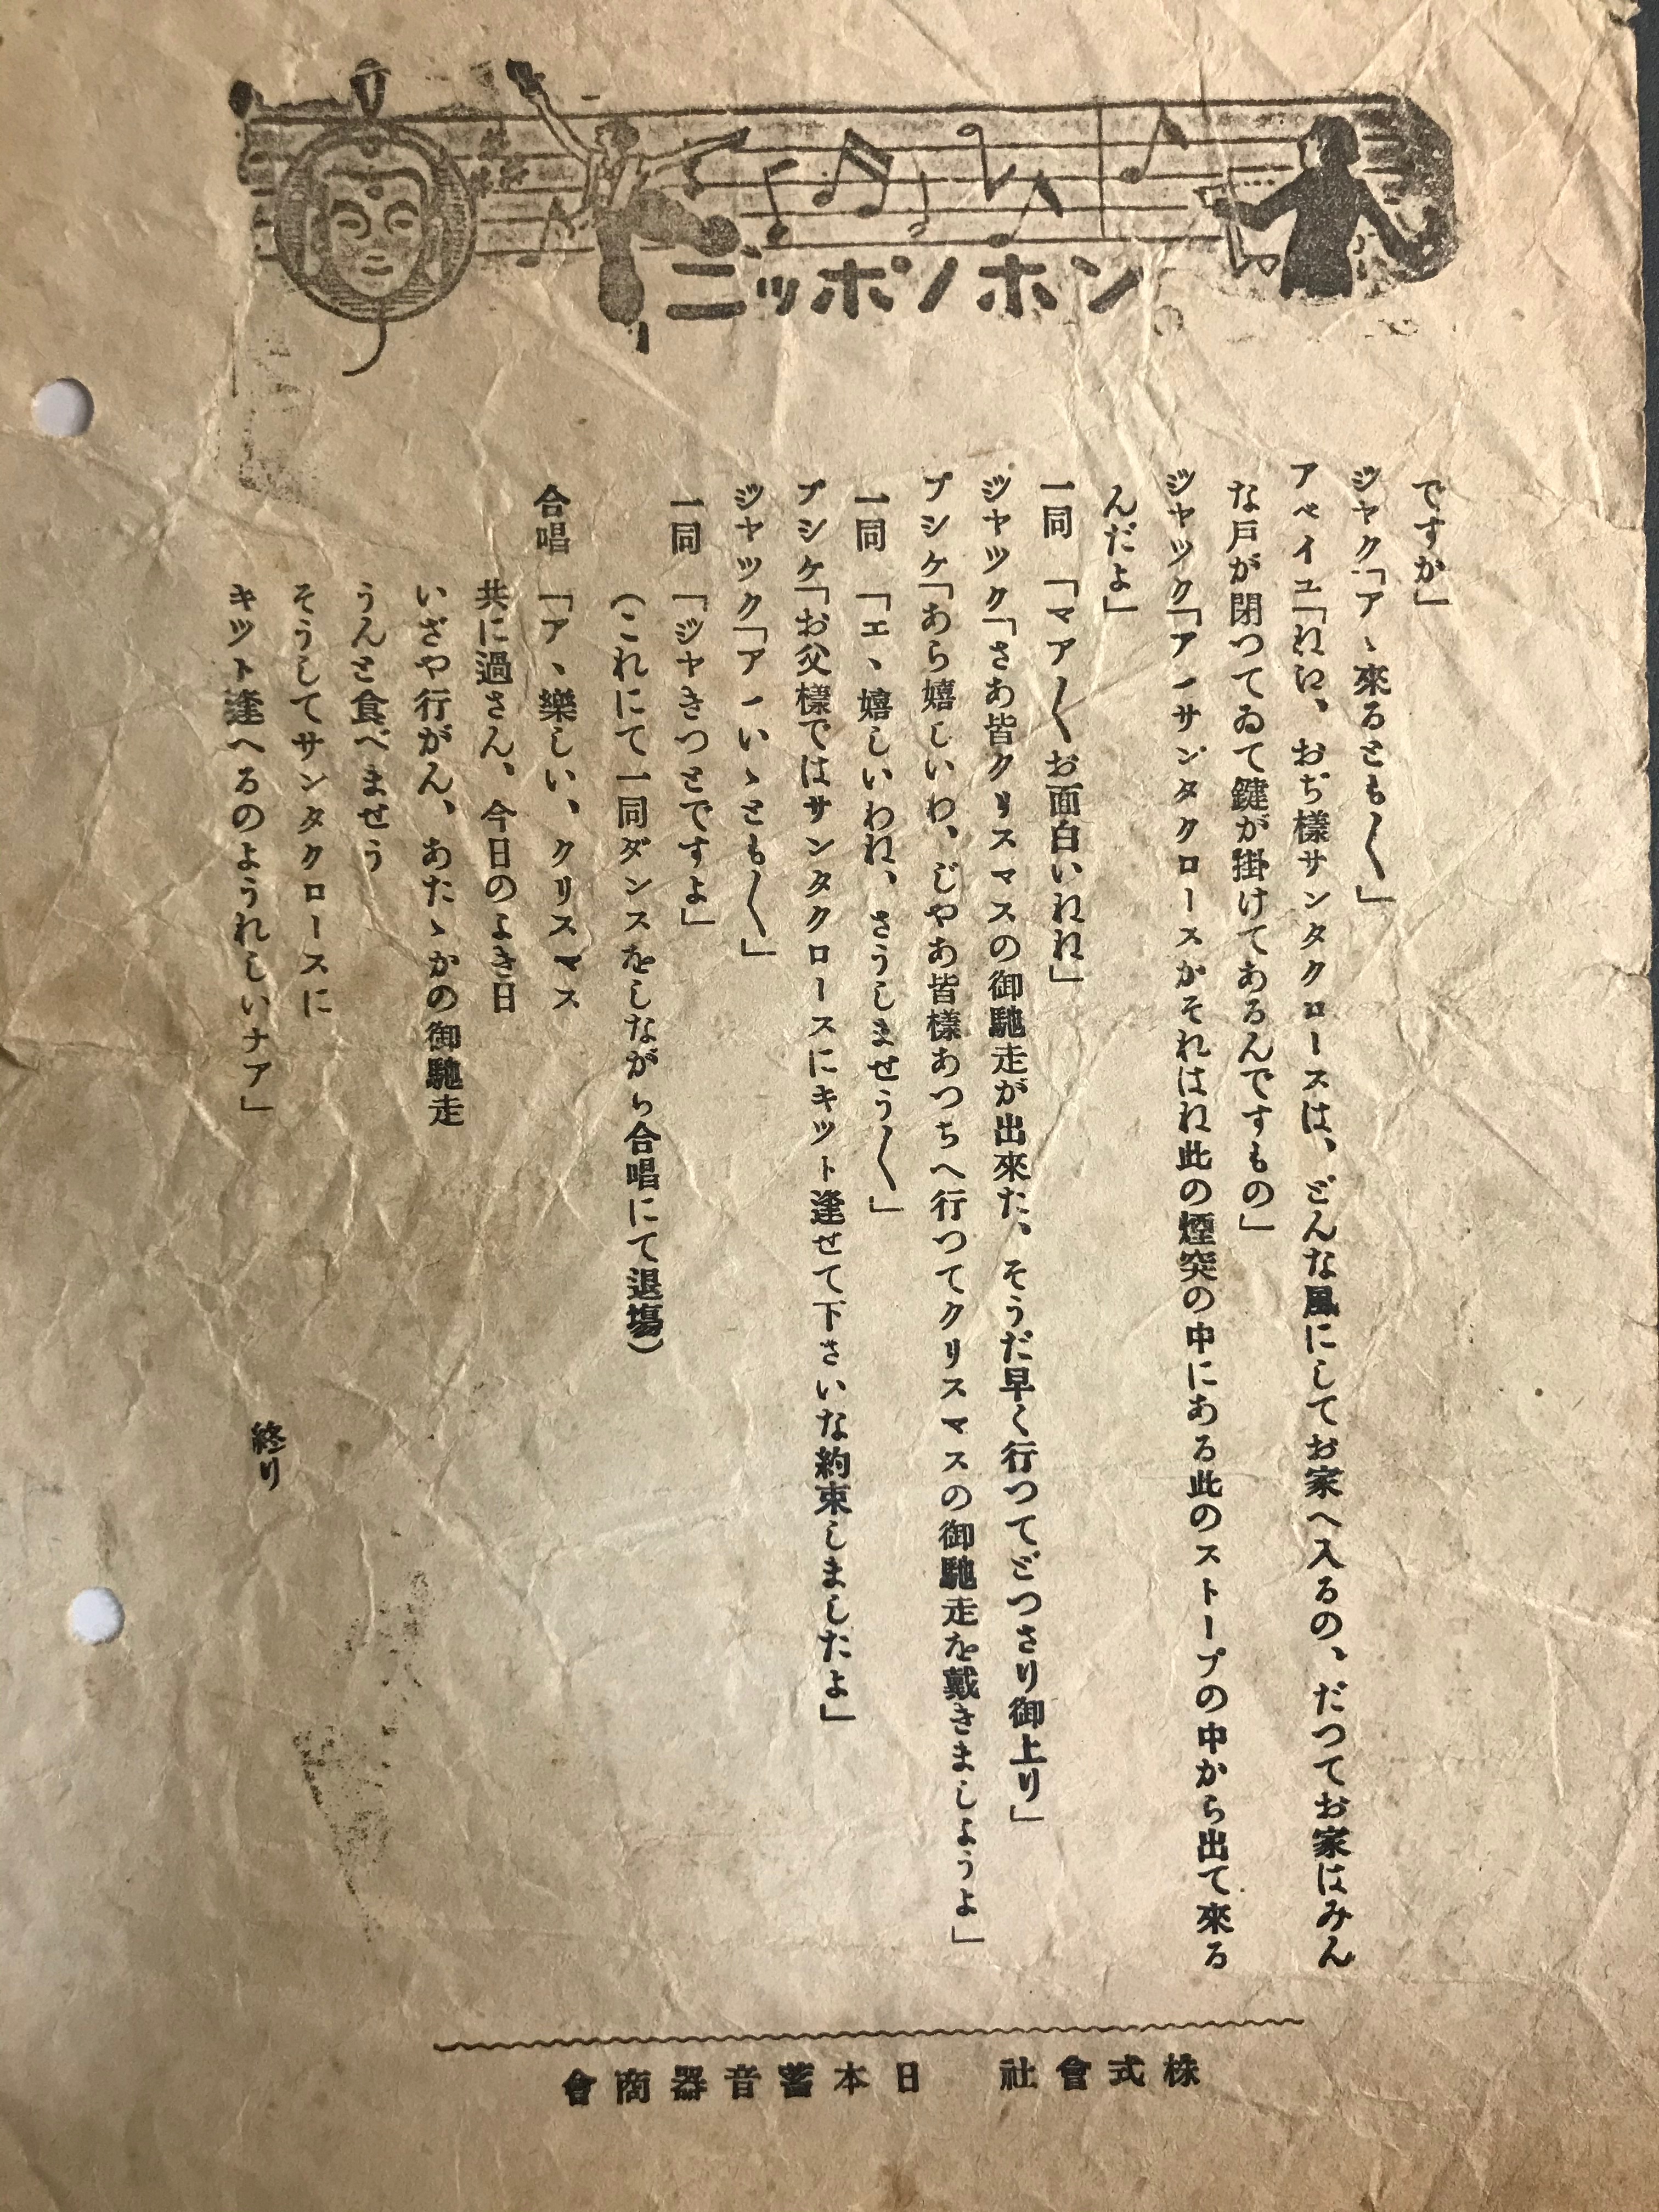 ニッポノホン
ですか」
ジヤク「アヽ來るとも〱」
アベイユ「ねい、おぢ樣サンタクロースは、どんな風にしてお家へ入るの、だつてお家はみん
な戸が閉つてゐて鍵が掛けてあるんですもの」
ジヤツク「アーサンタクロースかそれはね此の煙突の中にある此のストーブの中から出て來る
んだよ」
一同　「マア〱お面白いねね」
ジヤツク「さあ皆クリスマスの御馳走が出來た、そうだ早く行つてどつさり御上り」
プシケ「あら嬉しいわ、じやあ皆樣あつちへ行つてクリスマスの御馳走を戴きましようよ」
一同　「エヽ嬉しいわね、さうしませう〱」
プシケ「お父樣ではサンタクロースにキツト逢せて下さいな約束しましたよ」
ジヤツク「アーいゝとも〱」
一同　「ジヤきつとですよ」
（これにて一同ダンスをしながら合唱にて退塲）
合唱　「アヽ樂しい、クリスマス
共に過さん、今日のよき日
いざや行がん、あたゝかの御馳走
うんと食べませう
そうしてサンタクロースに
キツト逢へるのようれしいナア」
終り
株式會社　日本蓄音器商會